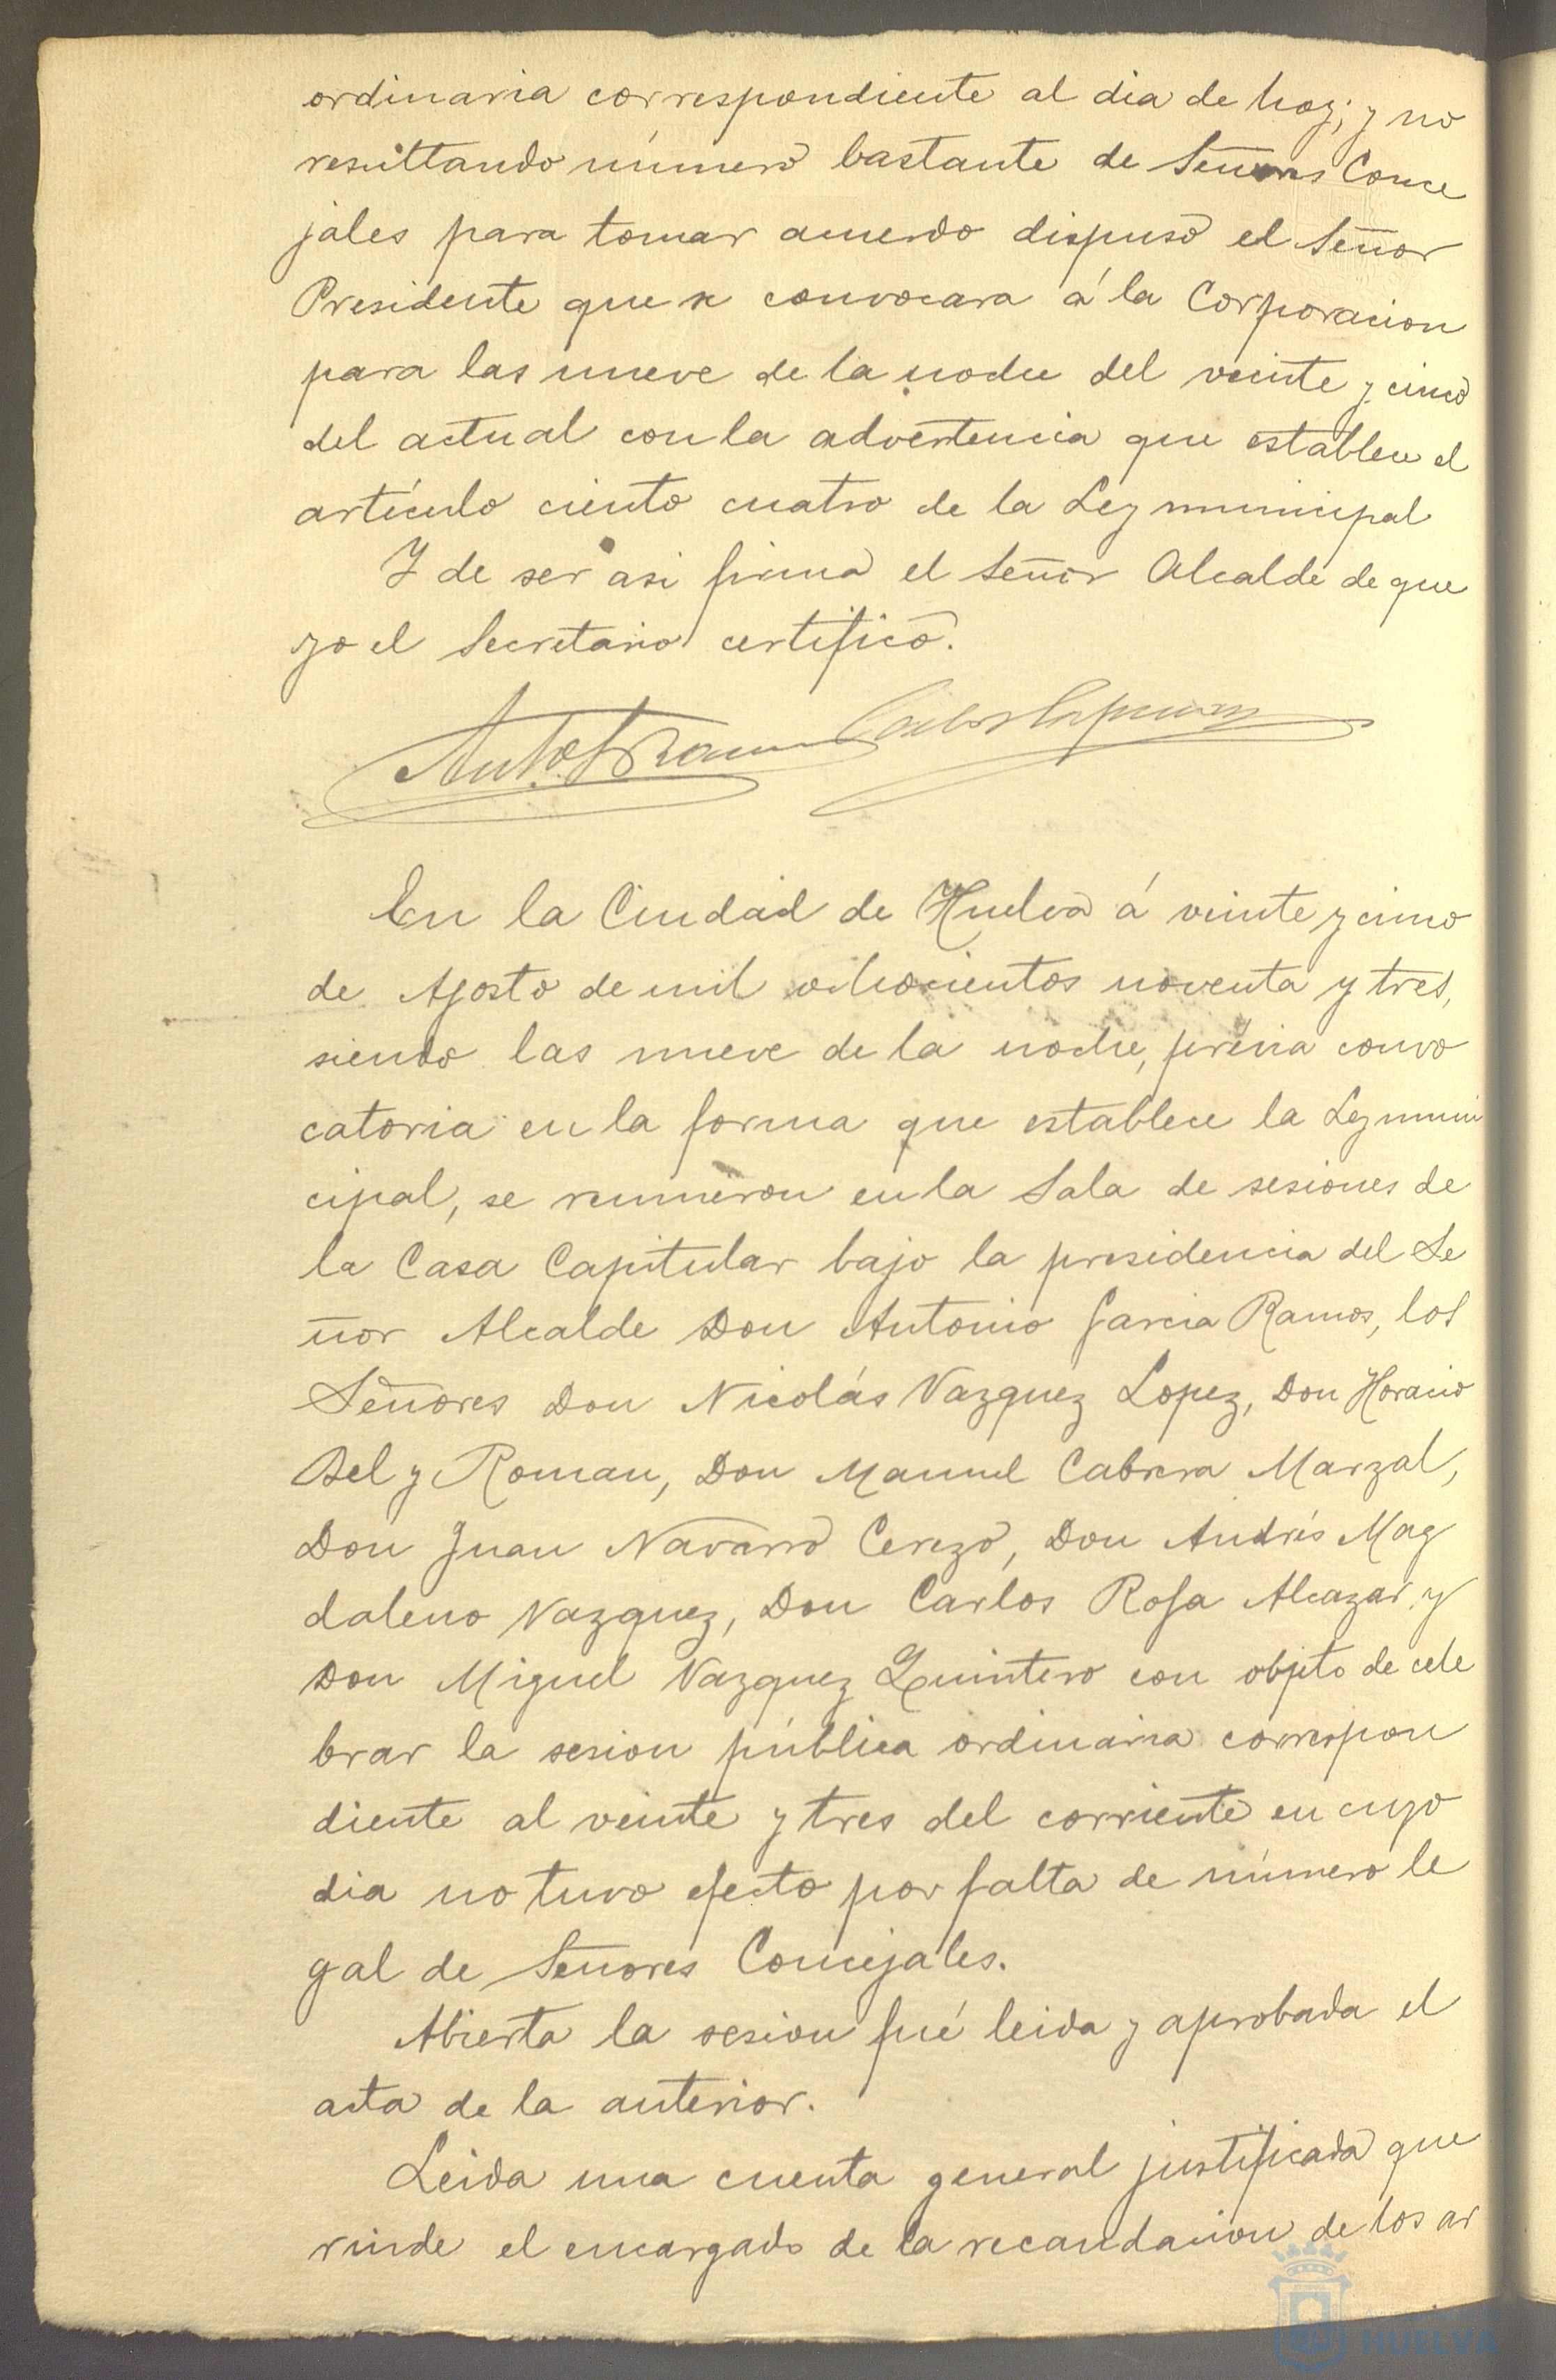 ordinaria correspondiente al dia de hoy; y no
resultando número bastante de Señores Conce
jales para tomar acuerdo dispuso el Señor
Presidente que se convocara á la Corporacion
para las nueve de la noche del veinte y cinco
del actual con la advertencia que establece el
artículo ciento cuatro de la Ley municipal
Y de ser asi firma el Señor Alcalde de que
yo el Secretario certifico.
Antº G Ramos
En la Ciudad de Huelva á veinte y cinco
de Agosto de mil ochocientos noventa y tres,
siendo las nueve de la noche, prévia convo
catoria en la forma que establece la Ley muni
cipal, se reunieron en la Sala de sesiones de
la Casa Capitular bajo la presidencia del Se
ñor Alcalde Don Antonio Garcia Ramos, los
Señores Don Nicolás Vazquez Lopez, Don Horacio
Bel y Roman, Don Manuel Cabrera Marzal,
Don Juan Navarro Cerezo, Don Andrés Mag
daleno Vazquez, Don Carlos Rofa Alcazar y
Don Miguel Vazquez Quintero con objeto de cele
brar la sesion pública ordinaria correspon
diente al veinte y tres del corriente en cuyo
dia no tuvo efecto por falta de número le
gal de Señores Concejales.
Abierta la sesion fué leida y aprobada el
acta de la anterior.
Leida una cuenta general justificada que
rinde el encargado de la recaudacion de los ar
HUELVA